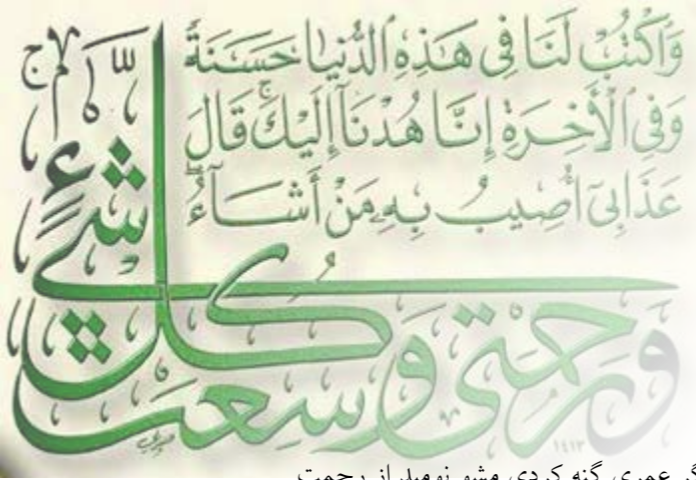 وَاكْتُبْ لَنَا فِي هَٰذِهِ الدُّنْيَا حَسَنَةً
وَفِي الْآخِرَةِ إِنَّا هُدْنَا إِلَيْكَ ۚ قَالَ
عَذَابِي أُصِيبُ بِهِ مَنْ أَشَاءُ ۖ
وَرَحْمَتِي وَسِعَتْ كُلَّ شَيْءٍ
١٤١٣
عمری گنه کردی مشو نومید از رحمت